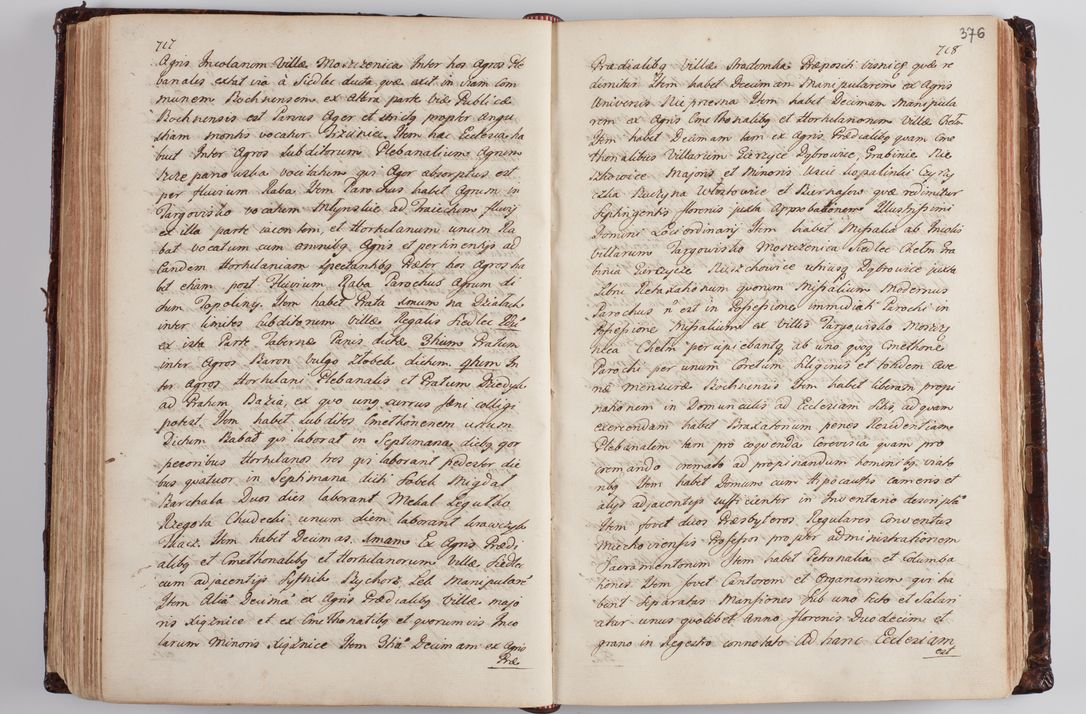 717
Agris Incolarum Villæ Moszczenica Inter hos Agros Ple
banales extat via à Siedlec ducta quæ exit in viam com
munem Bochnensem ex altera parte viæ Publicæ
Bochnensis est Parvus Ager et strictus propter angu
stiam montis vocatur Brzuiniec Item hæc Ecclesia ha
buit Inter Agros Subditorum Plebanalium Agrum
vocitatum qui Ager absorptus est
per fluvium Raba Item Parochus habet Agrum in
Targovisko vocatum Mlynskie ad Traiectum fluvij
ex illa parte iacentem, et Hortulanum unum Ra
bat vocatum cum omnibq Agris et pertinentijs ad
Eandem Hortulaniam spectantibq Præter hos Agros ha
bet etiam post Fluvium Raba Parochus Agrum di
ctum Topoliny. Item habet Prata 1mum na Dzialach
inter limites Subditorum Villæ Regalis Siedlec 2dum
ex ista Parte Tabernæ Panis dictæ 3tium Pratum
inter Agros Baron vulgo Zlobek dictum 4tum In
ter agros Hortulani Plebanalis et Pratum
ad Pratum Bazia, ex quo unq currus fæni colligi
potest. Item habet Subditos Cmethonem unum
Dictum Rabat qui laborat in Septimana diebq qor
pecoribus Hortulanos tres qui laborant pedester die
bus quatuor in Septimana dicti Sobek Migdal
Barchala Duos dies laborant Mechal Legutko
Rzegota Chudecki unum diem laborant
Tkacz. Item habet Decimas. 1mam Ex Agris Prædi
alibq et Cmethonalibq et Hortulanorum Villæ Siedlec
cum adjacentijs Rychorz Zeb Manipularem
Item Aliam Decimam ex Agris Prædialibq Villæ majo
ris Xiąźnice et ex Cmethonalibq et quorumvis Inco
larum minoris Xiąźnice Item 3tiam Decimam ex Agris
Præ
376
718
Prædialibq Villæ Stradomka Præpositi Visnicq quæ re
dimitur Item habet Decimam Manipularem ex Agris
Universis Nieprzesna Item habet Decimam Manipula
rem ex Agris Cmethonalibq et Hortulanorum Villæ Chelm
Item habet Decimam tam ex Agris Prædialibq quam Cme
thonalibus Villarum Gierzyce Dąbrowice, Grabinie Nie
szkowice Majoris et Minoris Uscie Sopalinski Cyzy
czka Buczyna Wtostowice et Bierhasow quæ redimitur
Septingentis florenis juxta Approbationem Illustrissimi
Domini Loci Ordinarij Item habet Missalia ab Incolis
villarum Targovisko Moszczenica Siedlec Chelm Gra
binia Gierczyce Nieszchowice utriusq Dąbrowice juxta
Literæ Retaxationum quorum Missalium Modernus
Parochus n est in Possessione immediati Parochi in
Possessione Missalium ex Villis Targovisko Moszcze
nica Chelm percipiebantq ab uno quoq Cmethone
Parochi per unum Coretum Siliginis et totidem Ave
næ mensuræ Bochnensis Item habet liberam propi
nationem in Domunculis ad Ecclesiam Sitis, ad quam
exercendam habet Braxatorium penes Residentiam
Plebanalem tam pro coquenda Cerevisia quam pro
cremando cremato ad propinandum hominibq viato
ribq Item habet Domum cum Hipocaustis cameris et
alijs adjacentijs sufficienter in Inventario descriptam
Item fovet duos Præsbyteros Regulares Conventus
Miechoviensis Professos propter administrationem
Sacramentorum Item habet Petronalia et Columba
tiones Item fovet Cantorem et Organarium qui ha
bent separatas Mansiones sub uno tecto et Salari
atur unus quolibet Anno florenis Duodecim et
grano in Regestro connotato Ad hanc Ecclesiam
est